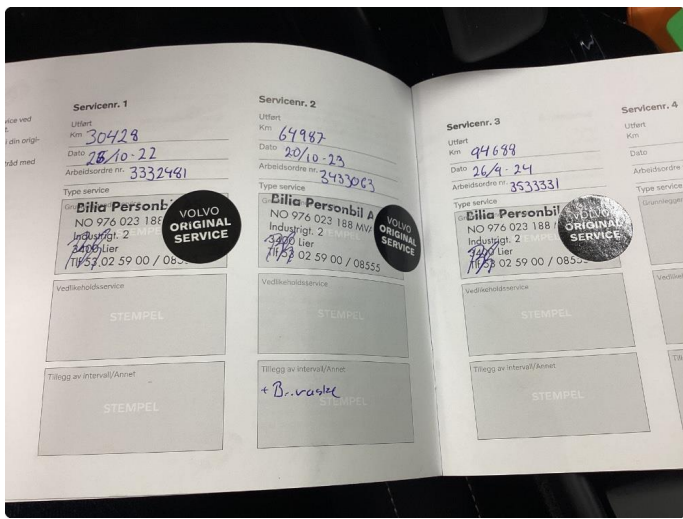 vice ved
t.
i din origi-
tråd med
Servicenr. 1
Utført
Km 30428
Dato 25/10-22
Arbeidsordre nr. 3332481
Type service
Bilia Personb
NO 976 023 188
Industrigt. 2
3400 Lier
Tlf 53 02 59 00 / 085
VOLVO
ORIGINAL
SERVICE
Vedlikeholdsservice
STEMPEL
Tillegg av intervall/Annet
STEMPEL
Servicenr. 2
Utført
Km 64987
Dato 20/10-23
Arbeidsordre nr. 3433063
Type service
Bilia Personbil A
NO 976 023 188 MV
Industrigt. 2
3400 Lier
Tlf 53 02 59 00 / 08555
VOLVO
ORIGINAL
SERVICE
Vedlikeholdsservice
STEMPEL
Tillegg av intervall/Annet
STEMPEL
Servicenr. 3
Utført
Km 94688
Dato 26/9-24
Arbeidsordre nr. 3533331
Type service
Bilia Personbil
NO 976 023 188
Industrigt. 2
3400 Lier
Tlf 53 02 59 00 / 0855
VOLVO
ORIGINAL
SERVICE
Vedlikeholdsservice
STEMPEL
Tillegg av intervall/Annet
STEMPEL
Servicenr. 4
Utført
Km
Dato
Arbeidsordre
Type service
Grunnlegger
Vedlikeholds